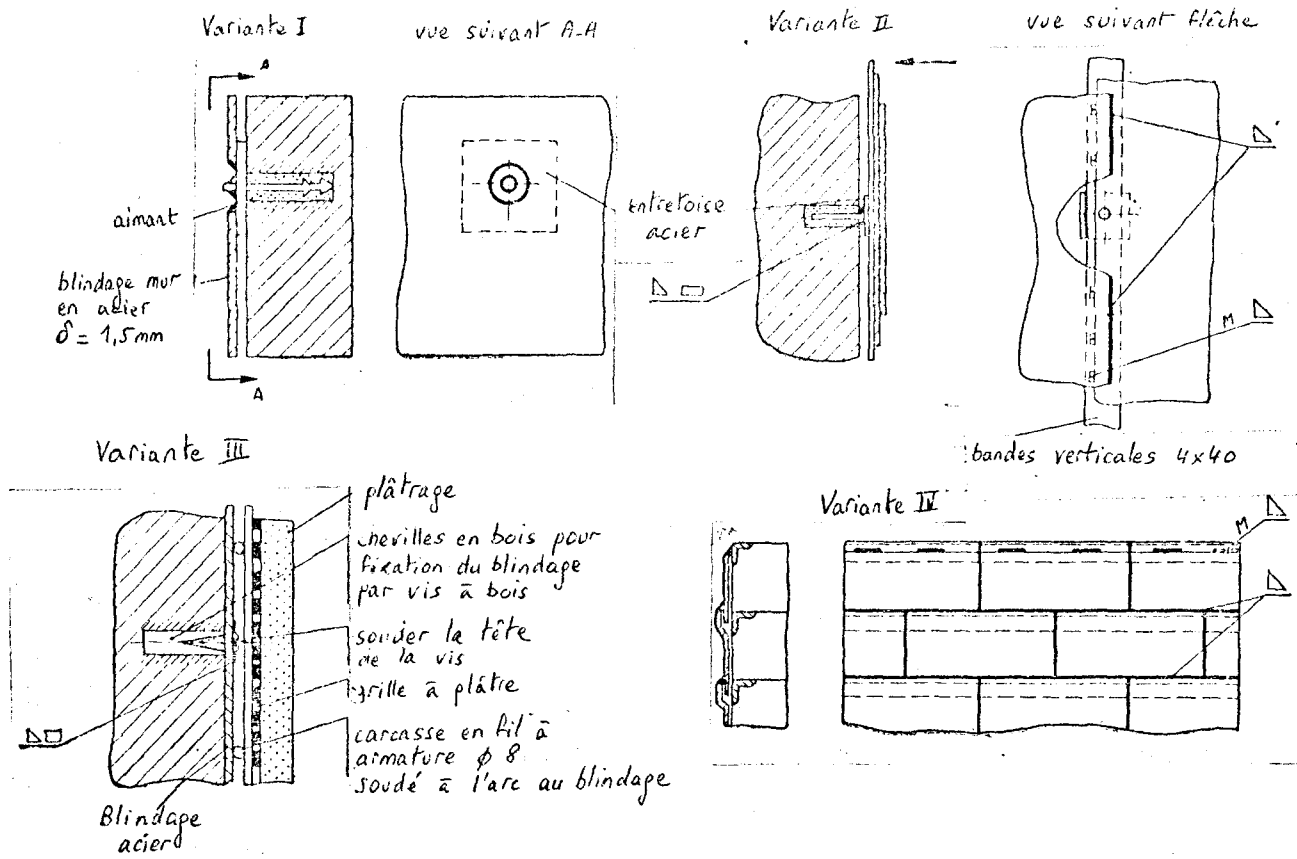 Variante I
vue suivant A-A
Variante II
vue suivant flèche
A
aimant
blindage mur
en acier
δ = 1,5mm
A
entretoise
acier
M
bandes verticales 4x40
Variante III
plâtrage
chevilles en bois pour
fixation du blindage
par vis à bois
souder la tête
de la vis
grille à plâtre
carcasse en fil à
armature ϕ 8
soudé à l'arc au blindage
Blindage
acier
Variante IV
M